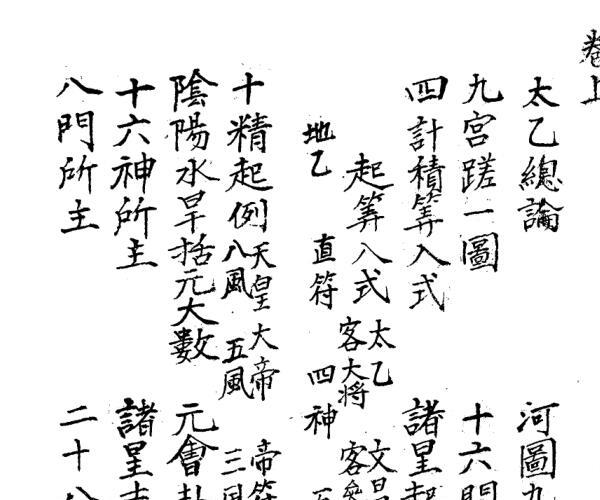 卷上
太乙總論 河圖九
九宮蹉一圖 十六門
四計積筭入式 諸星起
起筭八式 太乙 文昌
客大将 客
地乙 直符 四神
十精起例 天皇大帝 帝符
八風 五風 三風
陰陽水旱括元大數 元會卦
十六神所主 諸星
八門所主 二十八